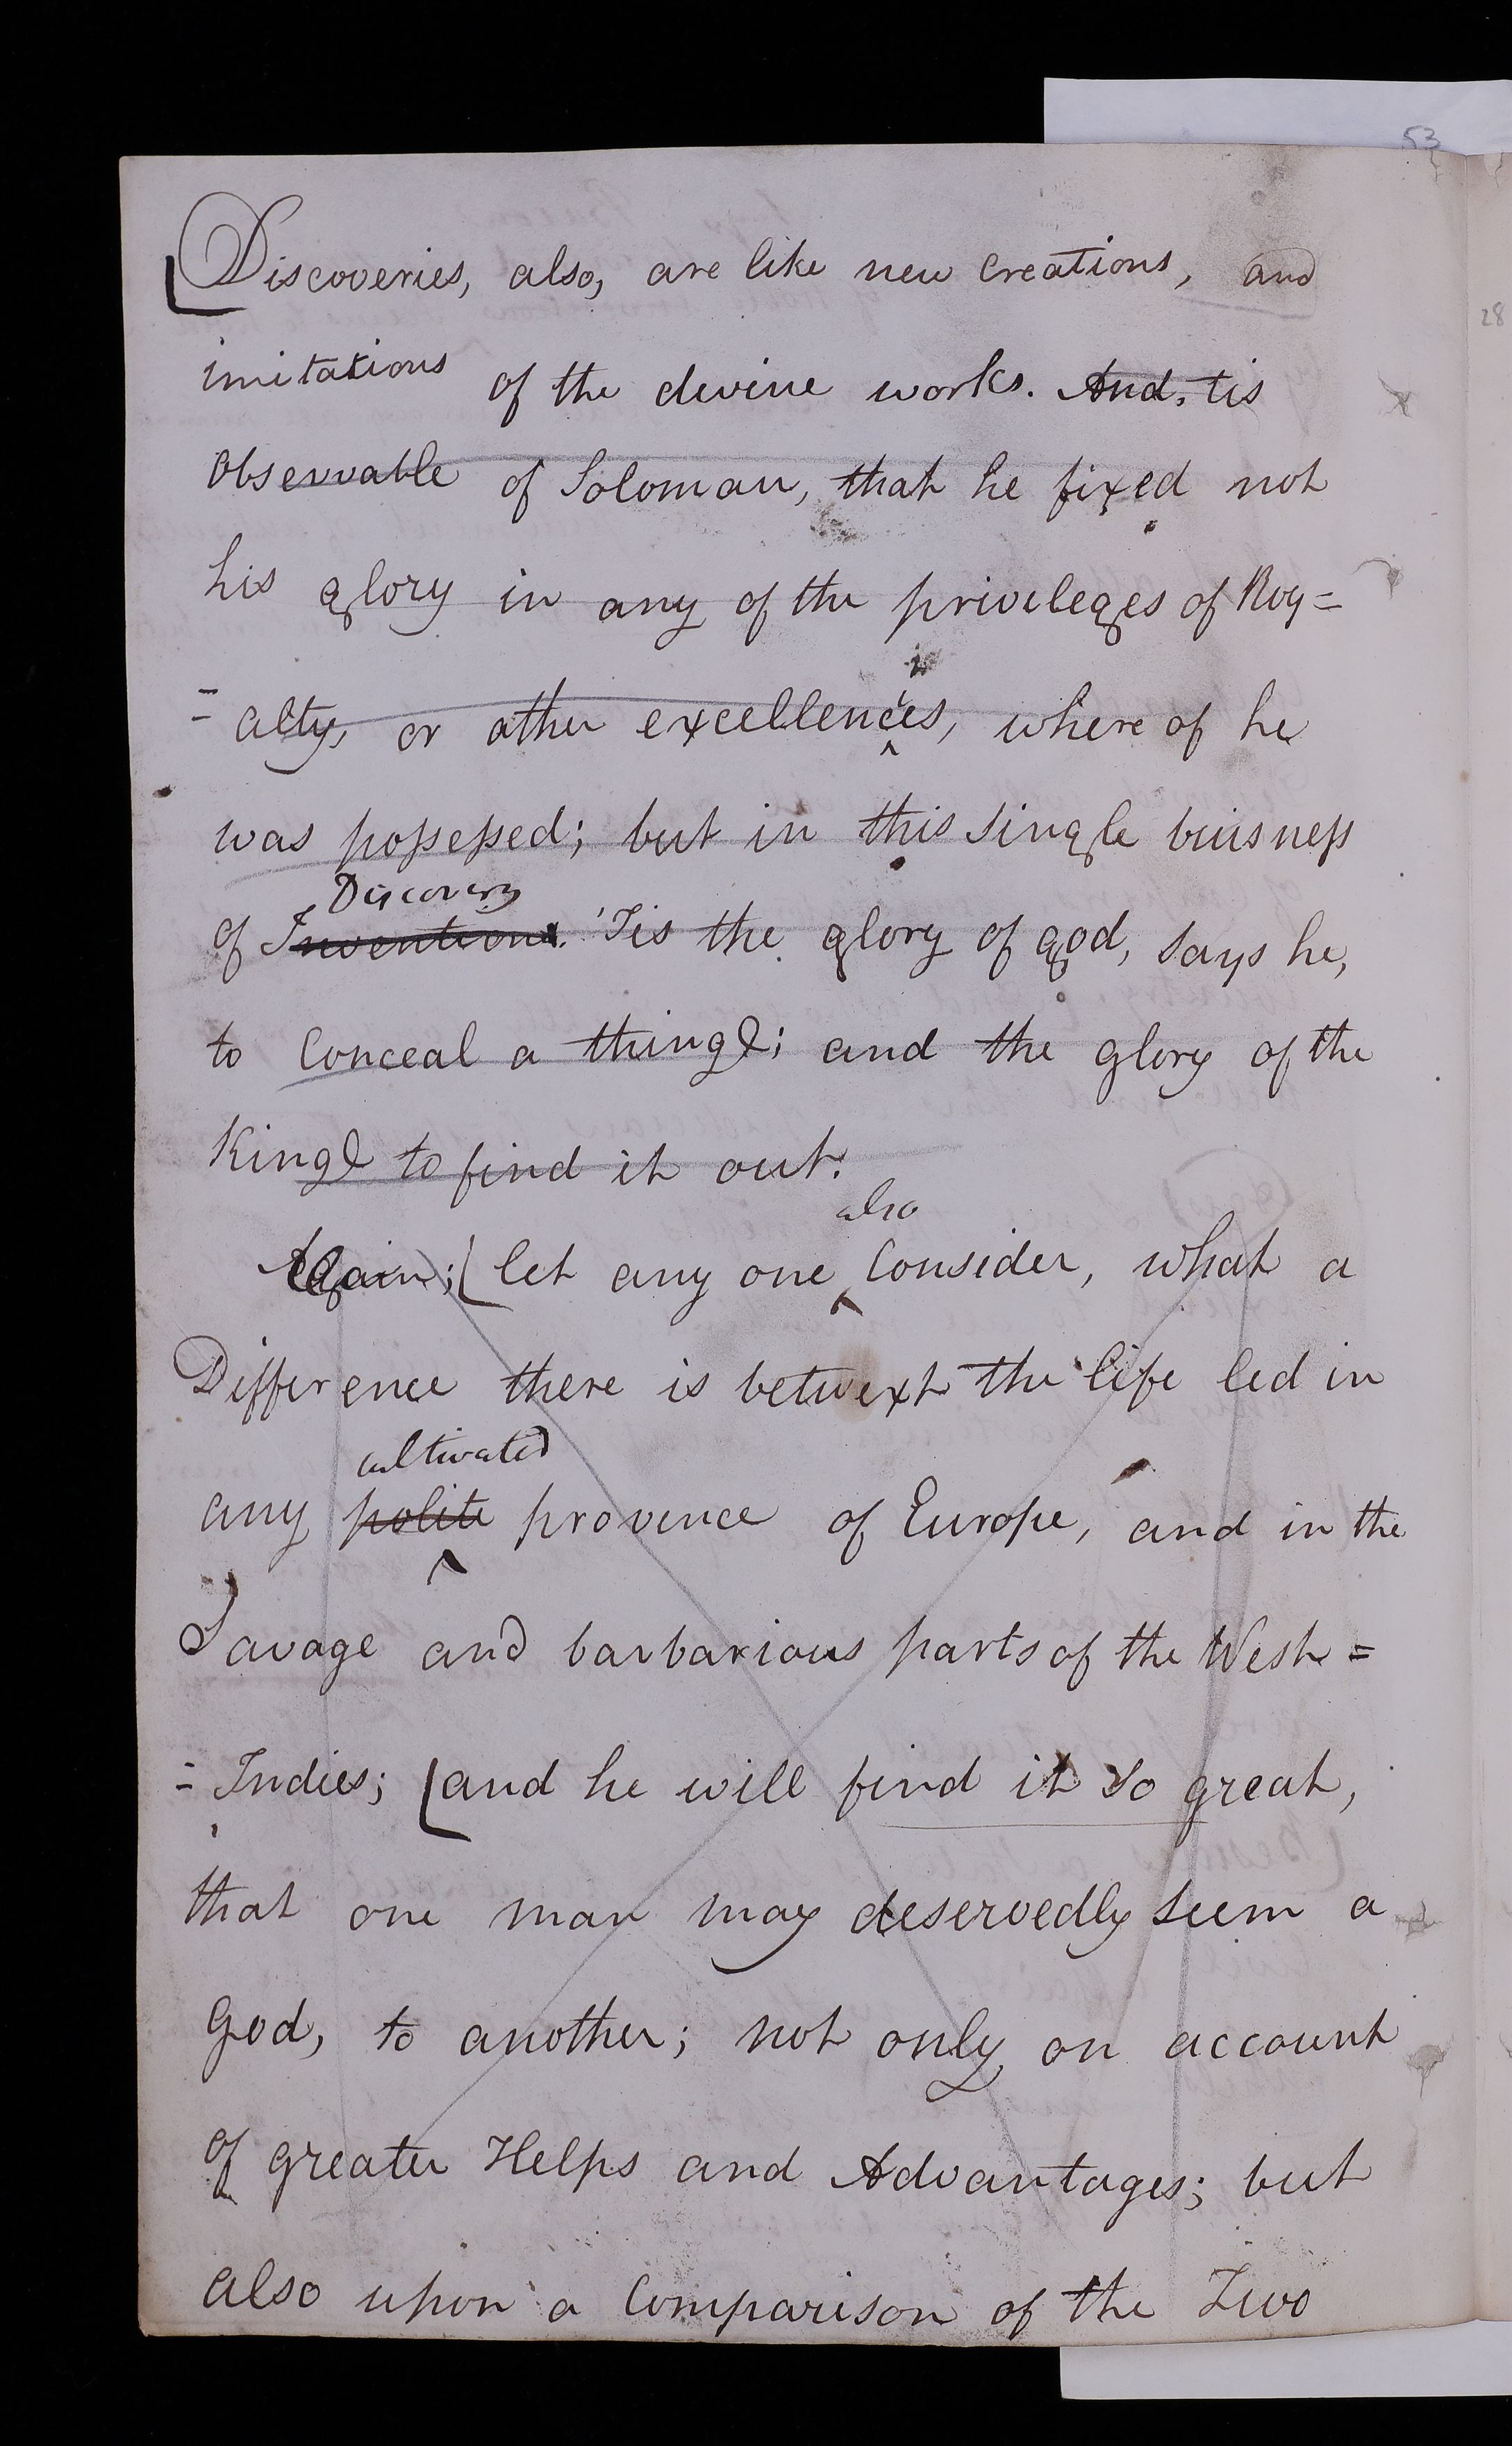 53
Discoveries, also, are like new Creations, and
28
imitations of the divine works. And, tis
Observable of Soloman, that he fixed not
his glory in any of the privileges of Roy=
= alty, or other excellencies, where of he
was possessed; but in this single buisness
Discovery
of Inventions. 'Tis the glory of god, says he,
to Conceal a thing; and the glory of the
King to find it out.
also
Again; [let any one ^ Consider, what a
Difference there is betwext the life led in
cultivated
any polite ^ province of Europe, and in the
Savage and barbarious parts of the West=
= Indies; [and he will find it so great,
that one man may deservedly seem a
God, to another; not only on account
of greater Helps and Advantages; but
also upon a Comparison of the Two